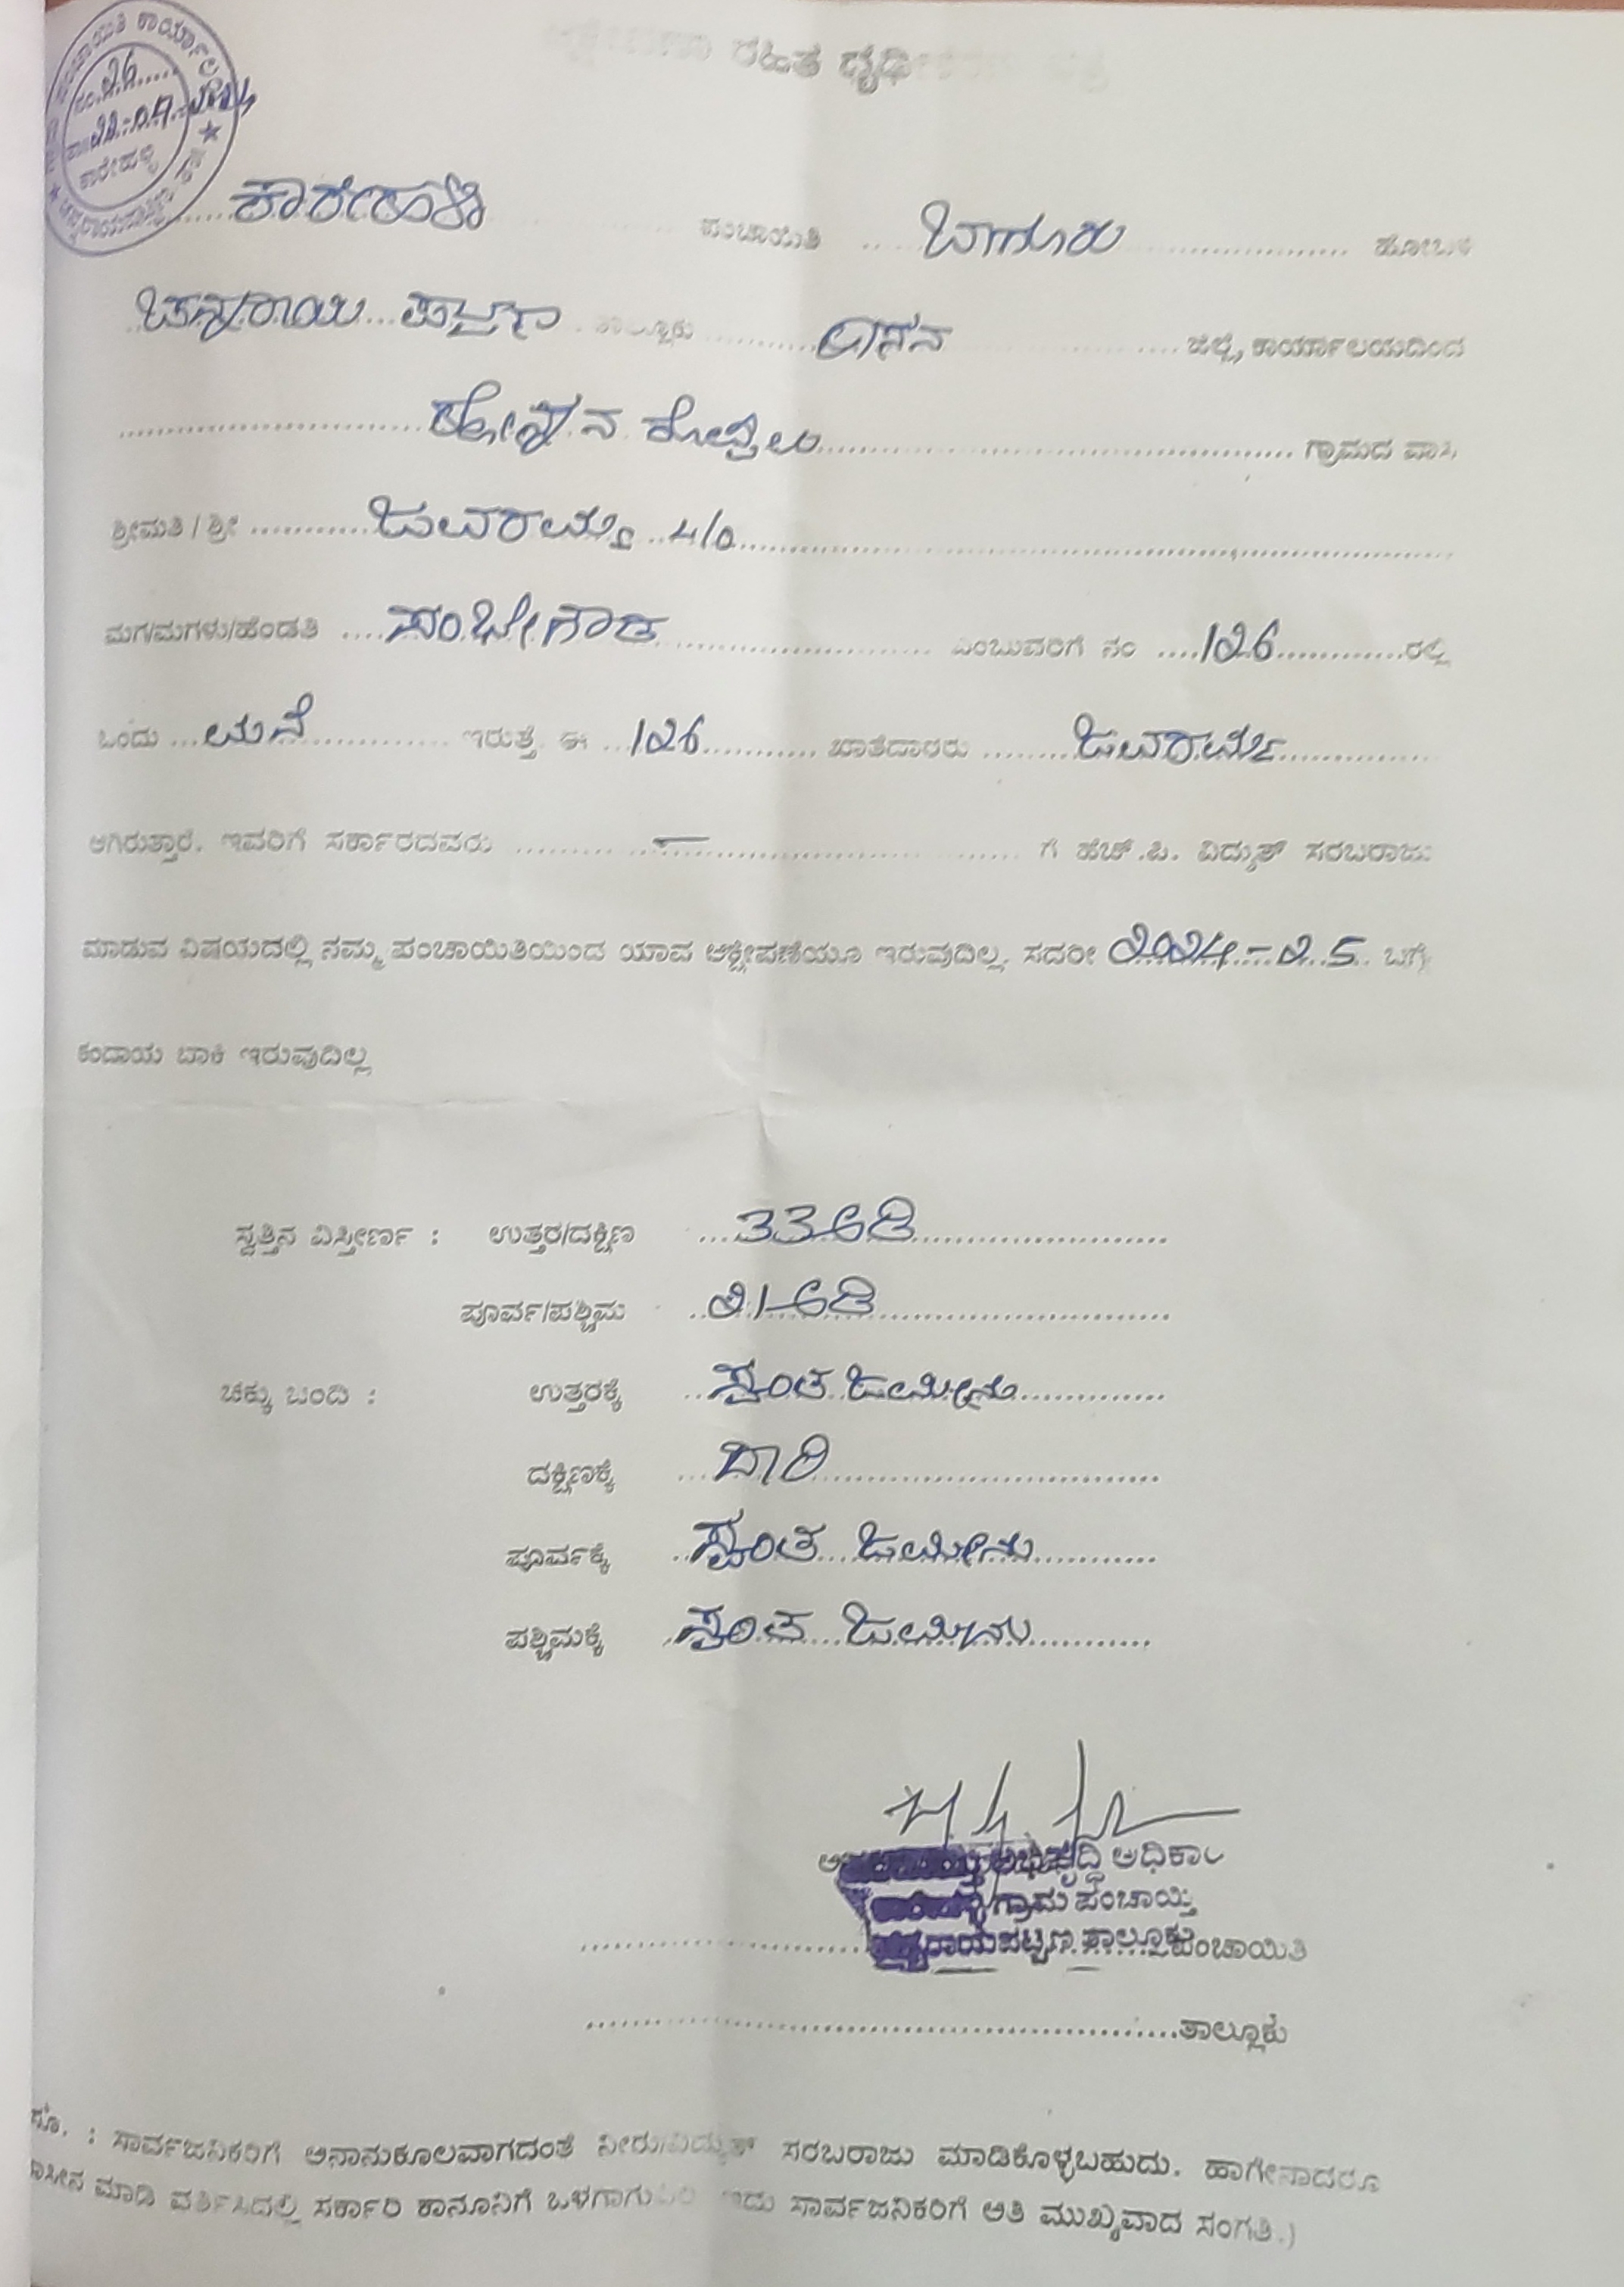 ಪಂಚಾಯಿತಿ ಕಾರ್ಯಾಲಯ
ನಂ. 26
ತಾ: 22-07-2024
ಕಾರೇಹಳ್ಳಿ
ರಹಿತ ಧೃಢೀ
ಕಾರೇಹಳ್ಳಿ ಪಂಚಾಯಿತಿ ಬಾಗೂರು ಹೋಬಳಿ
ಚನ್ನರಾಯ ಪಟ್ಟಣ ತಾಲ್ಲೂಕು ಹಾಸನ ಜಿಲ್ಲೆ, ಕಾರ್ಯಾಲಯದಿಂದ
ಕೊಪ್ಪಲು ಗ್ರಾಮದ ವಾಸಿ
ಶ್ರೀಮತಿ / ಶ್ರೀ ಜವರಮ್ಮ
ಮಗ/ಮಗಳು/ಹೆಂಡತಿ ಎಂಬುವರಿಗೆ ನಂ 126 ರಲ್ಲಿ
ಒಂದು ಮನೆ ಇರುತ್ತೆ ಈ 126 ಖಾತೆದಾರರು ಜವರಮ್ಮ
ಆಗಿರುತ್ತಾರೆ. ಇವರಿಗೆ ಸರ್ಕಾರದವರು — ಗೆ ಹೆಚ್.ಪಿ. ವಿದ್ಯುತ್ ಸರಬರಾಜು
ಮಾಡುವ ವಿಷಯದಲ್ಲಿ ನಮ್ಮ ಪಂಚಾಯಿತಿಯಿಂದ ಯಾವ ಆಕ್ಷೇಪಣೆಯೂ ಇರುವುದಿಲ್ಲ. ಸದರೀ 2024-25 ಬಗ್ಗೆ
ಕಂದಾಯ ಬಾಕಿ ಇರುವುದಿಲ್ಲ
ಸ್ವತ್ತಿನ ವಿಸ್ತೀರ್ಣ : ಉತ್ತರ/ದಕ್ಷಿಣ 33 ಅಡಿ
ಪೂರ್ವ/ಪಶ್ಚಿಮ 21 ಅಡಿ
ಚಕ್ಕು ಬಂದಿ : ಉತ್ತರಕ್ಕೆ ಸ್ವಂತ ಜಮೀನು
ದಕ್ಷಿಣಕ್ಕೆ ದಾರಿ
ಪೂರ್ವಕ್ಕೆ ಸ್ವಂತ ಜಮೀನು
ಪಶ್ಚಿಮಕ್ಕೆ ಸ್ವಂತ ಜಮೀನು
ಅಭಿವೃದ್ಧಿ ಅಧಿಕಾರಿ
ಗ್ರಾಮ ಪಂಚಾಯ್ತಿ
ಚನ್ನರಾಯಪಟ್ಟಣ ತಾಲ್ಲೂಕು ಪಂಚಾಯಿತಿ
ತಾಲ್ಲೂಕು
ಸೂ. : ಸಾರ್ವಜನಿಕರಿಗೆ ಅನಾನುಕೂಲವಾಗದಂತೆ ನೀರು/ವಿದ್ಯುತ್ ಸರಬರಾಜು ಮಾಡಿಕೊಳ್ಳಬಹುದು. ಹಾಗೇನಾದರೂ
ಮಾಡಿ ವರ್ತಿಸಿದಲ್ಲಿ ಸರ್ಕಾರಿ ಕಾನೂನಿಗೆ ಇದು ಸಾರ್ವಜನಿಕರಿಗೆ ಅತಿ ಮುಖ್ಯವಾದ ಸಂಗತಿ.)